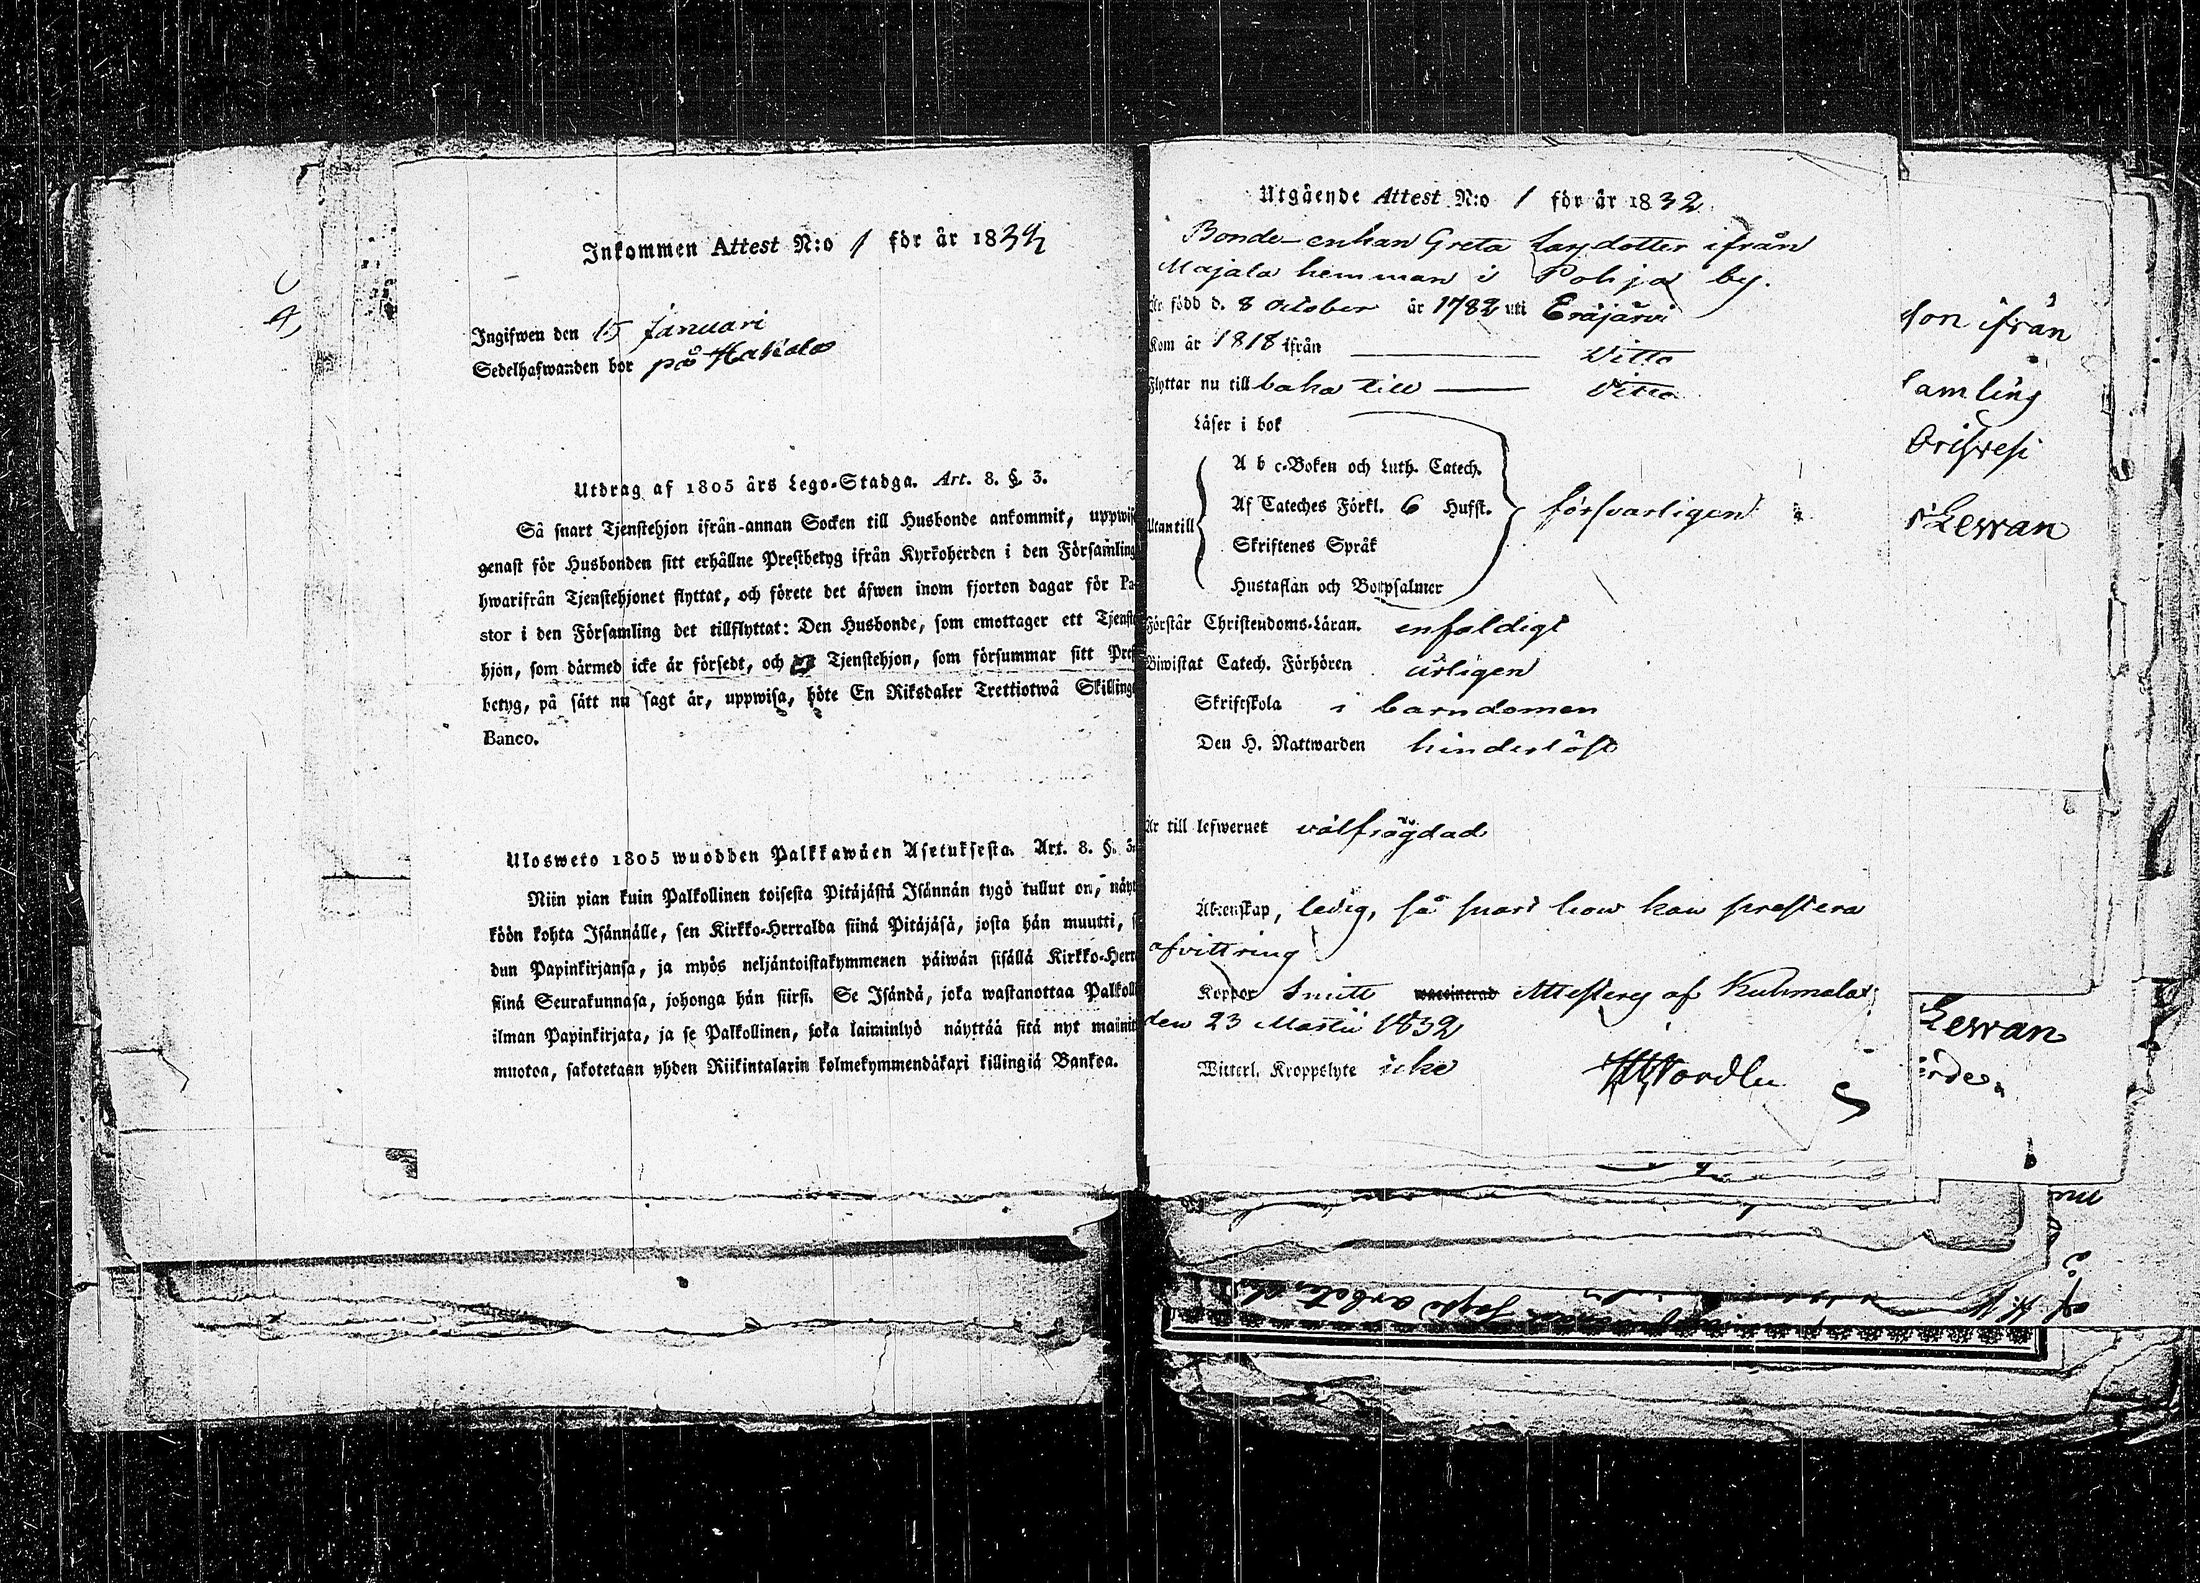 Inkommen Attest N:o 1 för år 1832
Ingifwen den 15 Januari
Sedelhafwanden bor på
Utdrag af 1805 års Lego-Stadga. Art. 8. §. 3.
Så snart Tjenstehjon ifrån annan Socken till Husbonde ankommit, uppwise
genast för Husbonden sitt erhållne Prestbetyg ifrån Kyrkoherden i den Församling
hwarifrån Tjenstehjonet flyttat, och förete det äfwen inom fjorton dagar för Pa-
stor i den Församling det tillflyttat: Den Husbonde, som emottager ett Tjenste
hjon, som därmed icke är försedt, och Tjenstehjon, som försummar sitt Prest
betyg, på sätt nu sagt är, uppwisa, böte En Riksdaler Trettiotwå Skilling
Banco.
Ulosweto 1805 wuodden Palkkawäen Asetuksesta. Art. 8. §. 3.
Niin pian kuin Palkollinen toisesta Pitäjästä Isännän tygö tullut on, näyt
köön kohta Isännälle, sen Kirkko-Herralda siinä Pitäjäsä, josta hän muutti, s
dun Papinkirjansa, ja myös neljäntoistakymmenen päiwän sisällä Kirkko-Herr
siinä Seurakunnasa, johonga hän siirsi. Se Isändä, joka wastanottaa Palkoll
ilman Papinkirjata, ja se Palkollinen, joka laiminlyö näyttää sitä nyt mainit
muotoa, sakotetaan yhden Riikintalarin kolmekymmendäkaxi killingiä Bankoa.
Utgående Attest N:o 1 för år 1832
Bonde-enkan Greta Larsdotter ifrån
Majala hemman i Pohja by.
är född d. 8 October år 1782 uti Eräjärvi
Kom år 1818 ifrån Ditto
Flyttar nu till baka till Ditto
Läser i bok
A b c-Boken och Luth. Catech.
Utantill Af Cateches Förkl. 6 Hufst. försvarligen
Skriftenes Språk
Hustaflan och Botpsalmer
Förstår Christendoms-Läran. enfaldigt
Biwistat Catech. Förhören årligen
Skriftskola i barndomen
Den H. Nattwarden hinderlöst
Är till lefwernet välfrägdad
Äktenskap, ledig, så snart hon kan prestera
afvittring
Koppor Smitt waccinerad Attesterg af Kuhmalax
den 23 Martii 1832
Witterl. Kroppslyte icke
son ifrån
amling
Orisvesi
Lewan
Lewan